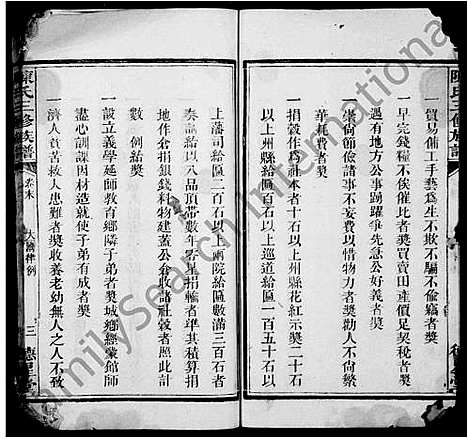 陳氏三修族譜
一貿易傭工手藝爲生不欺不騙不偷竊者獎
一早完錢糧不俟催比者獎買賣田產價足契稅者獎
遇有地方公事踴躍爭先急公好義者獎
一崇尚節儉諸事不妄費以惜物力者獎勸人不尚繁
華耗費者獎
一捐穀作倉本者十石以上州縣花紅示獎二十石
以上州縣給區六十石以上巡道給匾一百五十石以
上藩司給匾二百石以上兩院給匾數滿三百石者
奏請給以八品頂帶數年零星捐輸者準其積算捐
地作倉捐銀錢料物建蓋公倉收諸社穀者照此計
數 例給獎
一設立義學延師教育鄉隣子弟者獎城鄉經蒙館師
盡心訓課因材造就使子弟有成者獎
一濟人貧苦救人患難者獎收養老幼無人之人不致
陳氏三修族譜
卷末
大清律例
三
德星堂
FamilySearch International